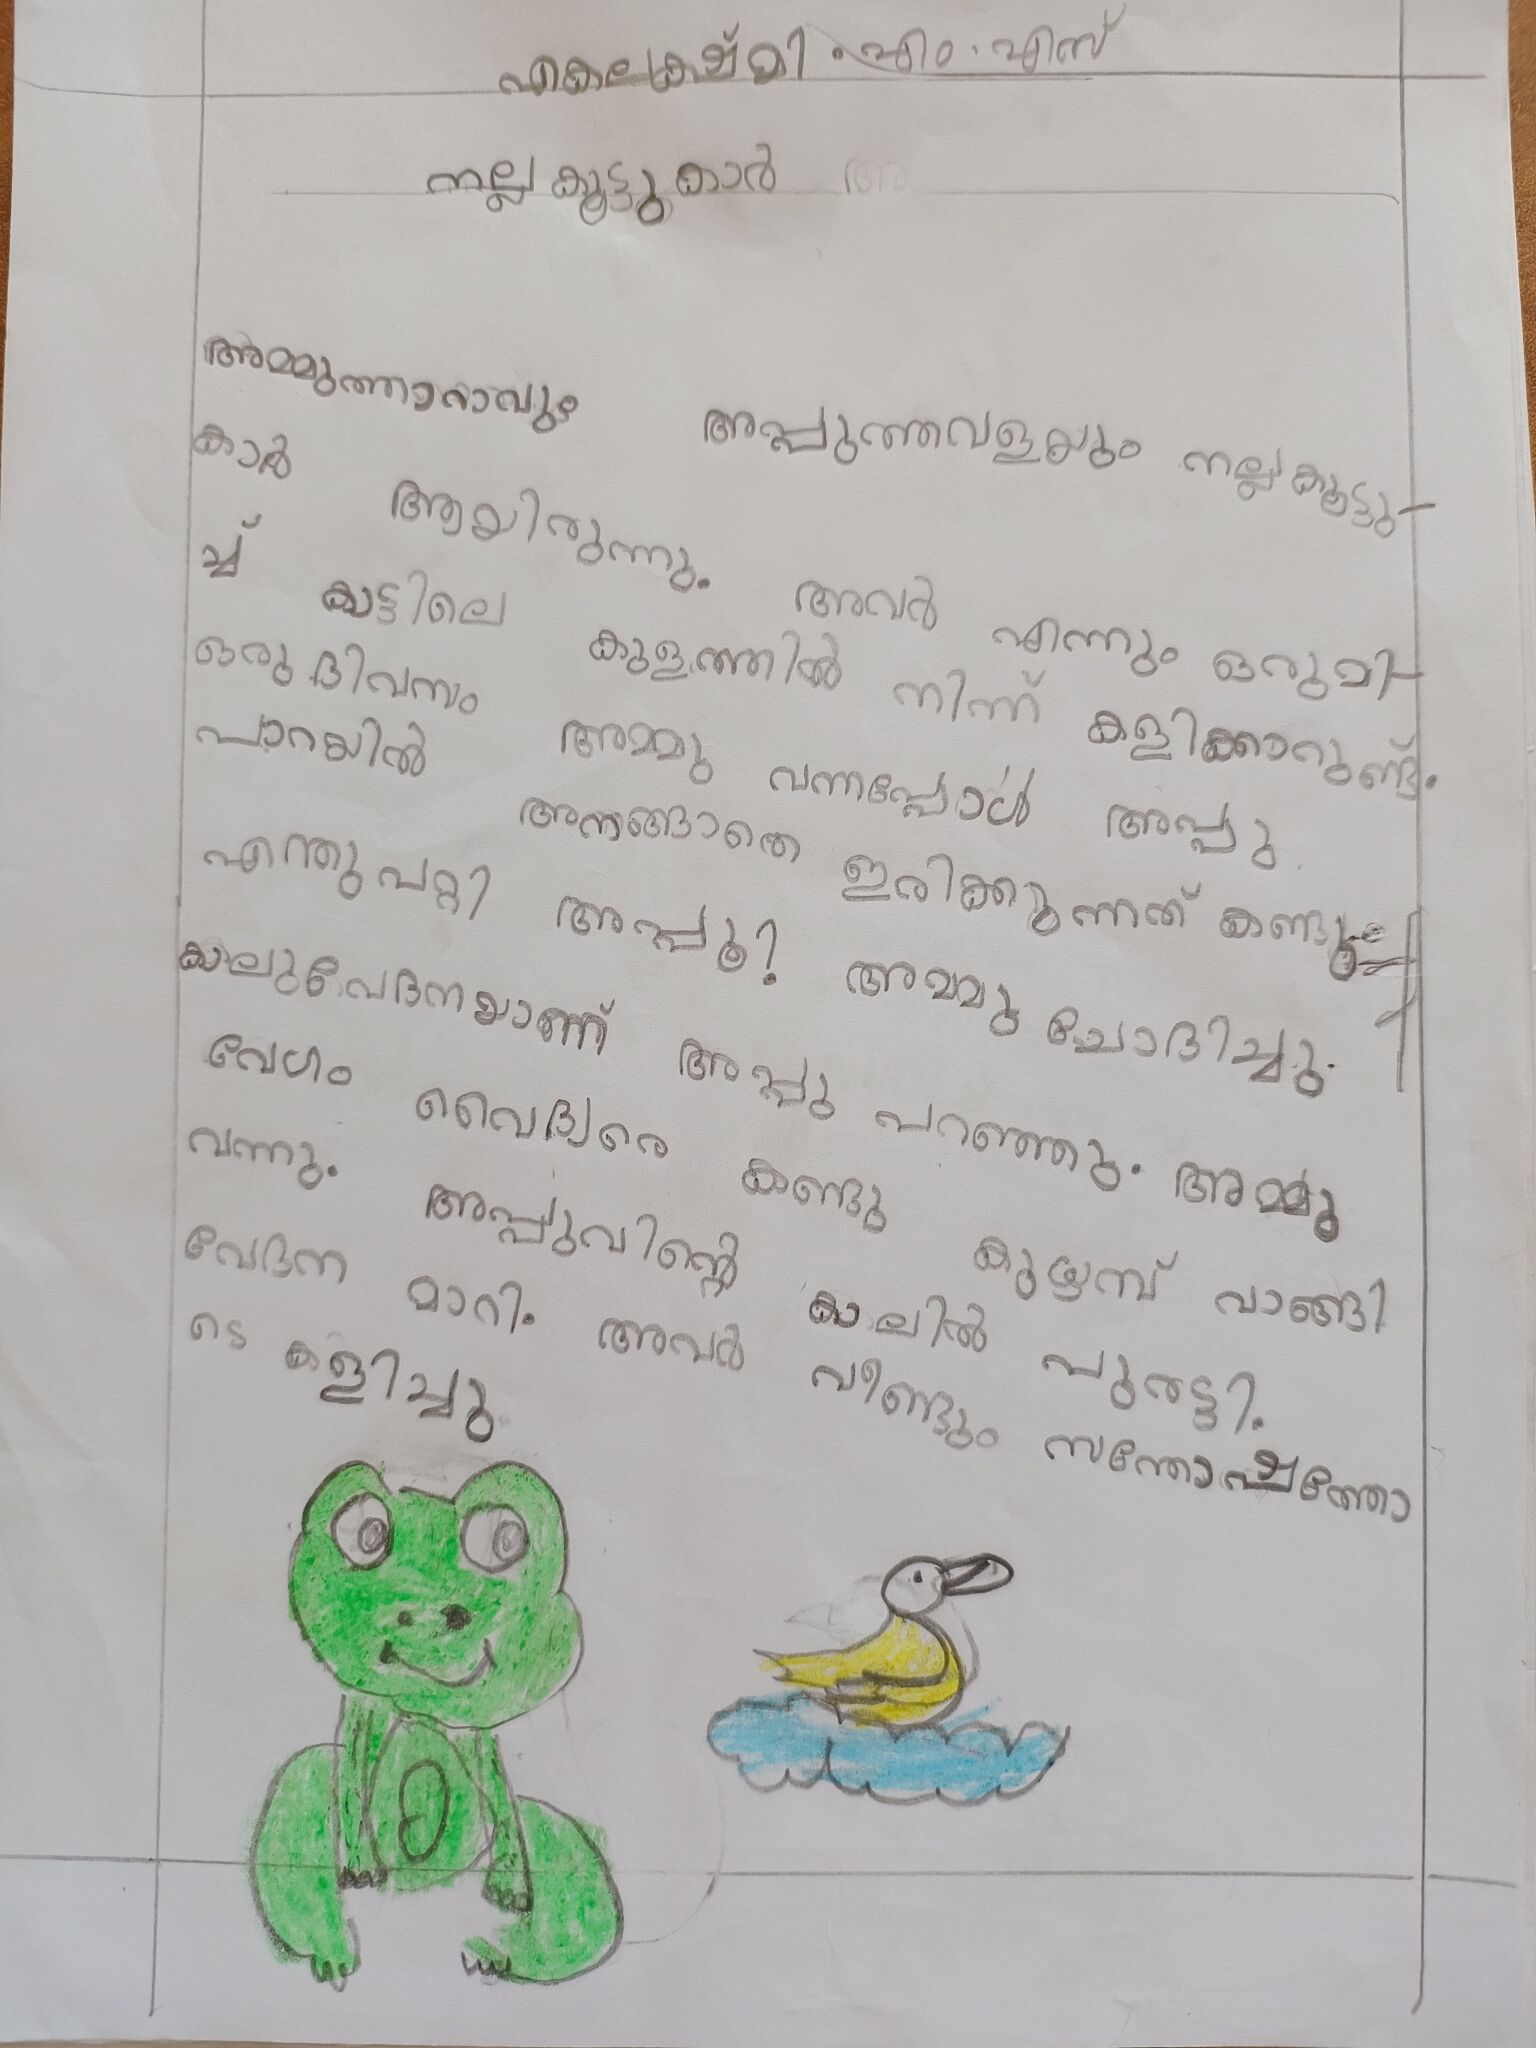 എം. എസ്
നല്ല കൂട്ടുകാർ
അമ്മുത്താറാവും അപ്പുത്തവളയും നല്ല കൂട്ടു-
കാർ ആയിരുന്നു. അവർ എന്നും ഒരുമി-
ച്ച് കാട്ടിലെ കുളത്തിൽ നിന്ന് കളിക്കാറുണ്ട്.
ഒരു ദിവസം അമ്മു വന്നപ്പോൾ അപ്പു
പാറയിൽ അനങ്ങാതെ ഇരിക്കുന്നത് കണ്ടു
എന്തുപറ്റി അപ്പൂ? അമ്മു ചോദിച്ചു.
കാലുവേദനയാണ് അപ്പു പറഞ്ഞു. അമ്മു
വേഗം വൈദ്യരെ കണ്ടു കുഴമ്പ് വാങ്ങി
വന്നു. അപ്പുവിന്റെ കാലിൽ പുരട്ടി.
വേദന മാറി. അവർ വീണ്ടും സന്തോഷത്തോ
ടെ കളിച്ചു